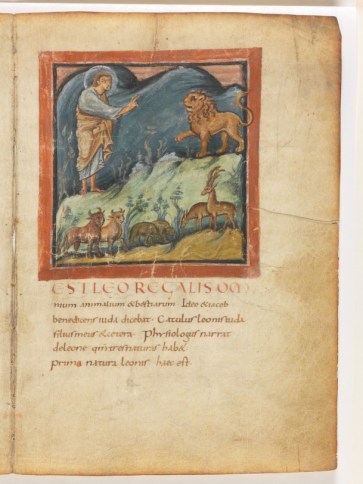 EST LEO REGALIS OM
nium animalium & bestiarum · Ideo & iacob
benedicens iuda dicebat · Catulus leonis iuda
filius meus & cetera · Phisiologus narrat
de leone qm tres naturas habet
prima natura leonis haec est ·